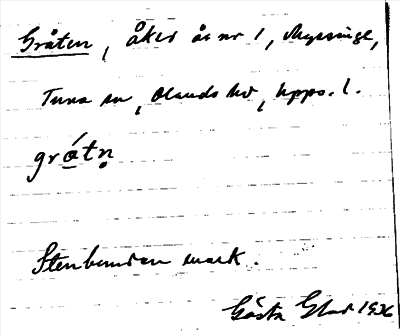 Gråten, åker å nr 1, Myssinge,
Tuna sn, Olands hd, Upps. l.
grátn̥
Stenbunden mark.
Gösta Elad 1936